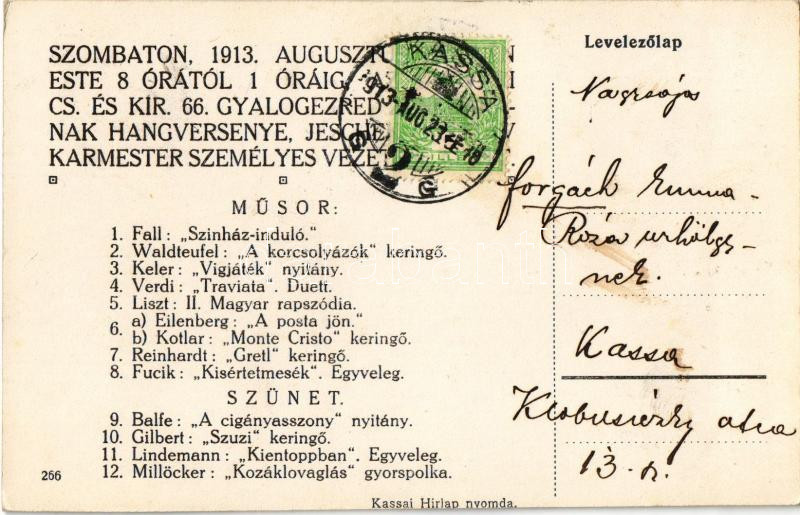 SZOMBATON, 1913. AUGUSZTU
ESTE 8 ÓRÁTÓL 1 ÓRÁIG,
CS. ÉS KIR. 66. GYALOGEZRED
NAK HANGVERSENYE, JESCHE
KARMESTER SZEMÉLYES VEZET
MŰSOR:
1. Fall: „Szinház-induló.“
2. Waldteufel: „A korcsolyázók“ keringő.
3. Keler: „Vigjáték“ nyitány.
4. Verdi: „Traviata“. Duett.
5. Liszt: II. Magyar rapszódia.
6. a) Eilenberg: „A posta jön.“
b) Kotlar: „Monte Cristo“ keringő.
7. Reinhardt: „Gretl“ keringő.
8. Fucik: „Kisértetmesék“. Egyveleg.
SZÜNET.
9. Balfe: „A cigányasszony“ nyitány.
10. Gilbert: „Szuzi“ keringő.
11. Lindemann: „Kientoppban“. Egyveleg.
12. Millöcker: „Kozáklovaglás“ gyorspolka.
266
Kassai Hirlap nyomda.
KASSA
913 AUG 23
Levelezőlap
forgách Emma
Róza urhölgy-
nek.
Kassa
13.